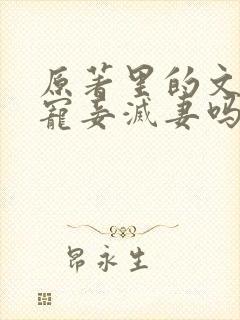 原著里的文
寵妾滅妻吗
昂永生